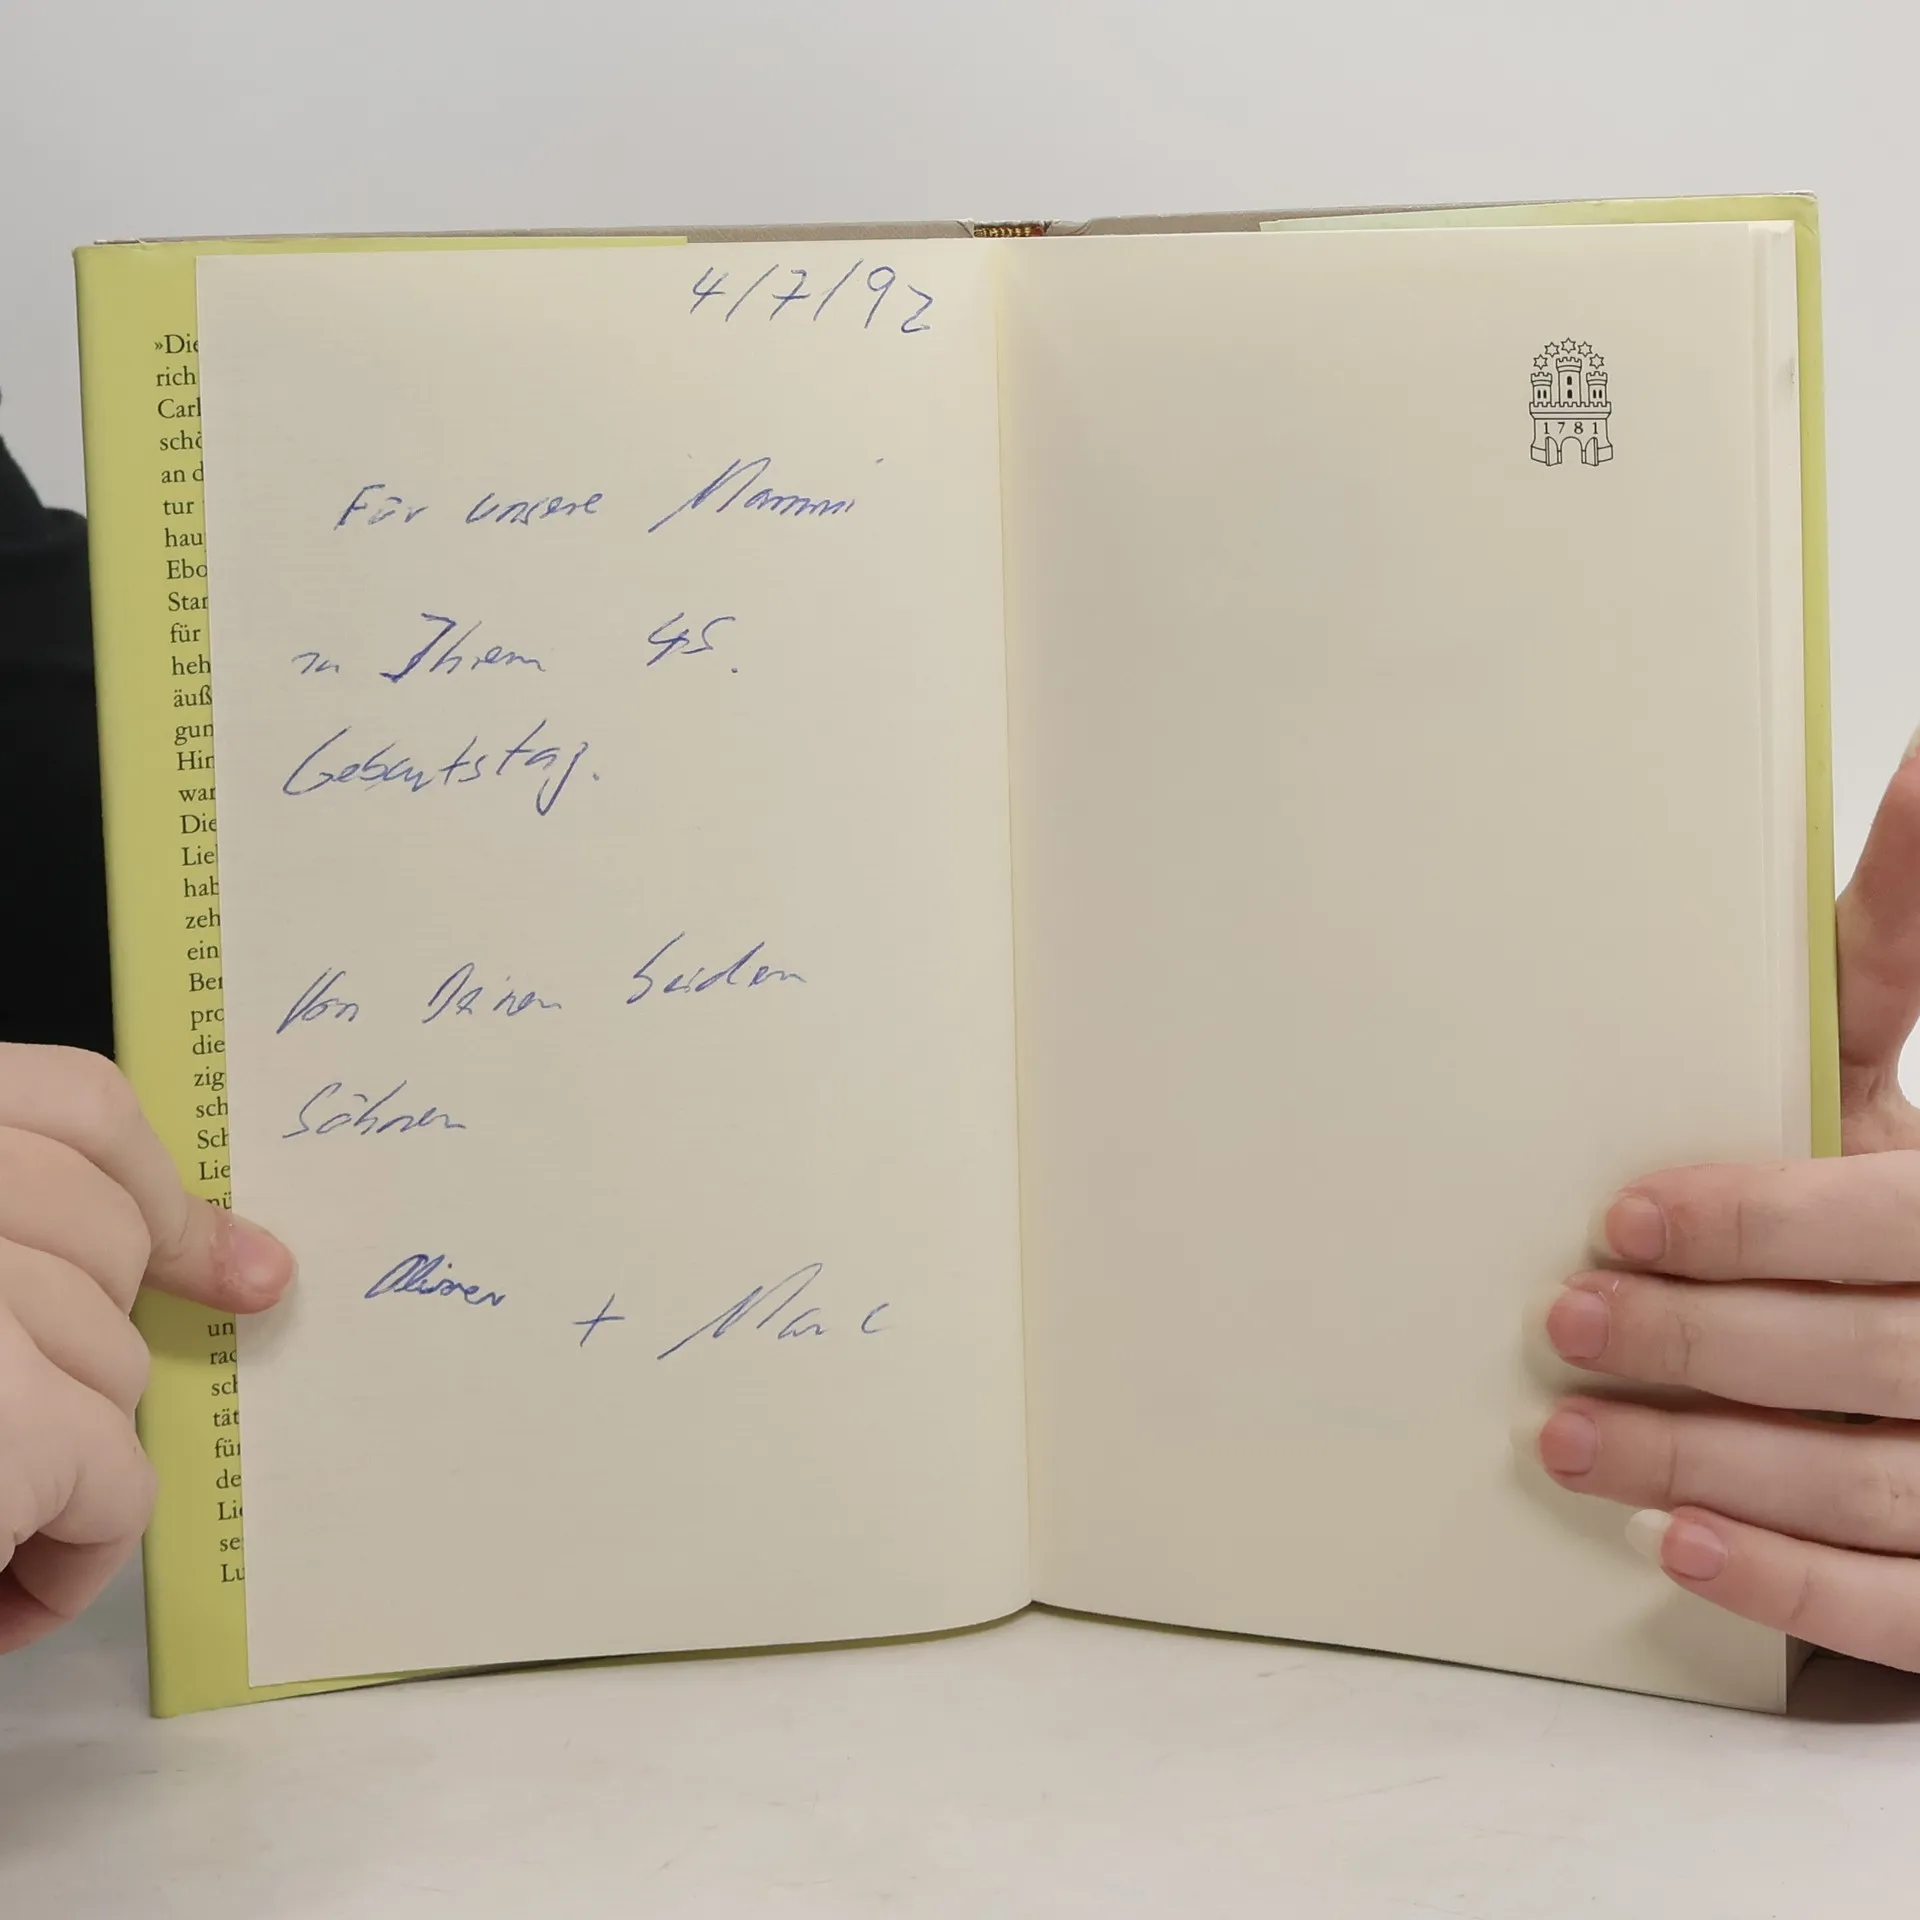 4/7/92
Für unsere Mammi
zu Ihrem 45.
Geburtstag.
Von Deinen beiden
Söhnen
Oliver + Marc
1781
»Die
rich
Carl
schö
an d
tur
hau
Ebo
Star
für
heh
äuß
gun
Hin
war
Die
Lie
hab
zeh
ein
Ber
pro
die
zig
sch
Sch
Lie
mü
un
rac
sch
tät
für
de
Lie
se
Lu